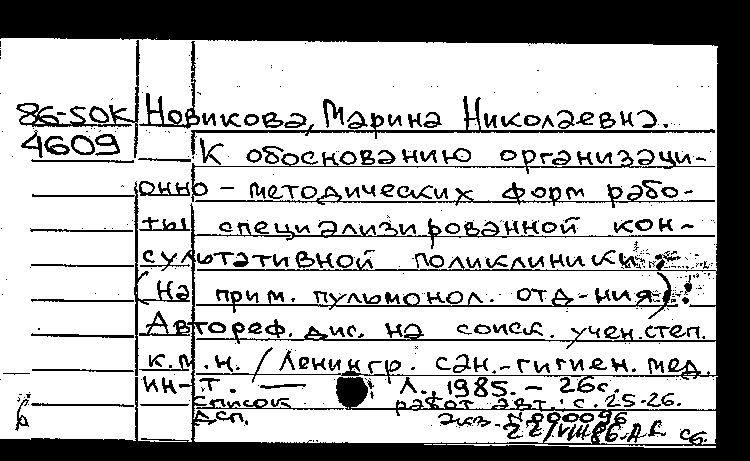 86-50К Новикова, Марина Николаевна.
4609
К обоснованию организаци-
онно-методических форм рабо-
ты специализированной кон-
сультативной поликлиники
(на прим. пульмонол. отд-ния):
Автореф. дис. на соиск. учен. степ.
к.м.н. / Ленингр. сан.-гигиен. мед.
ин-т. — Л., 1985. - 26с.
Список работ авт.: с. 25-26.
ДСП. Экз. N 000096
22/VIII86.